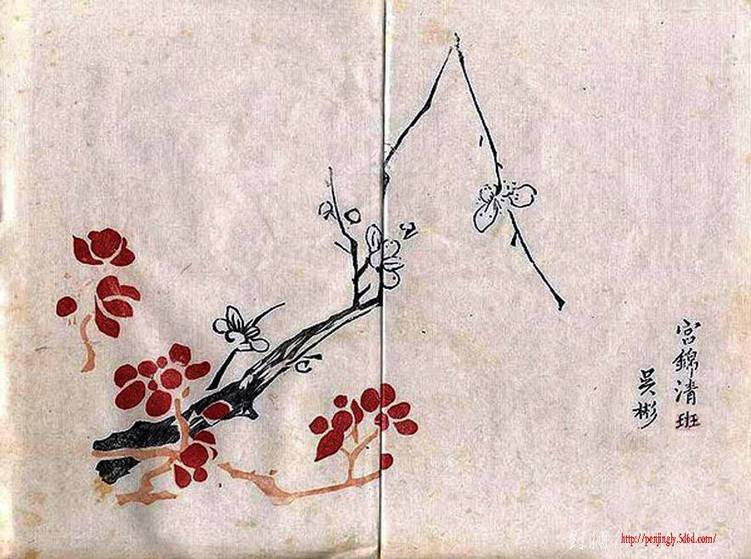 宫錦清班
吴彬
http://penjingly.5d6d.com/